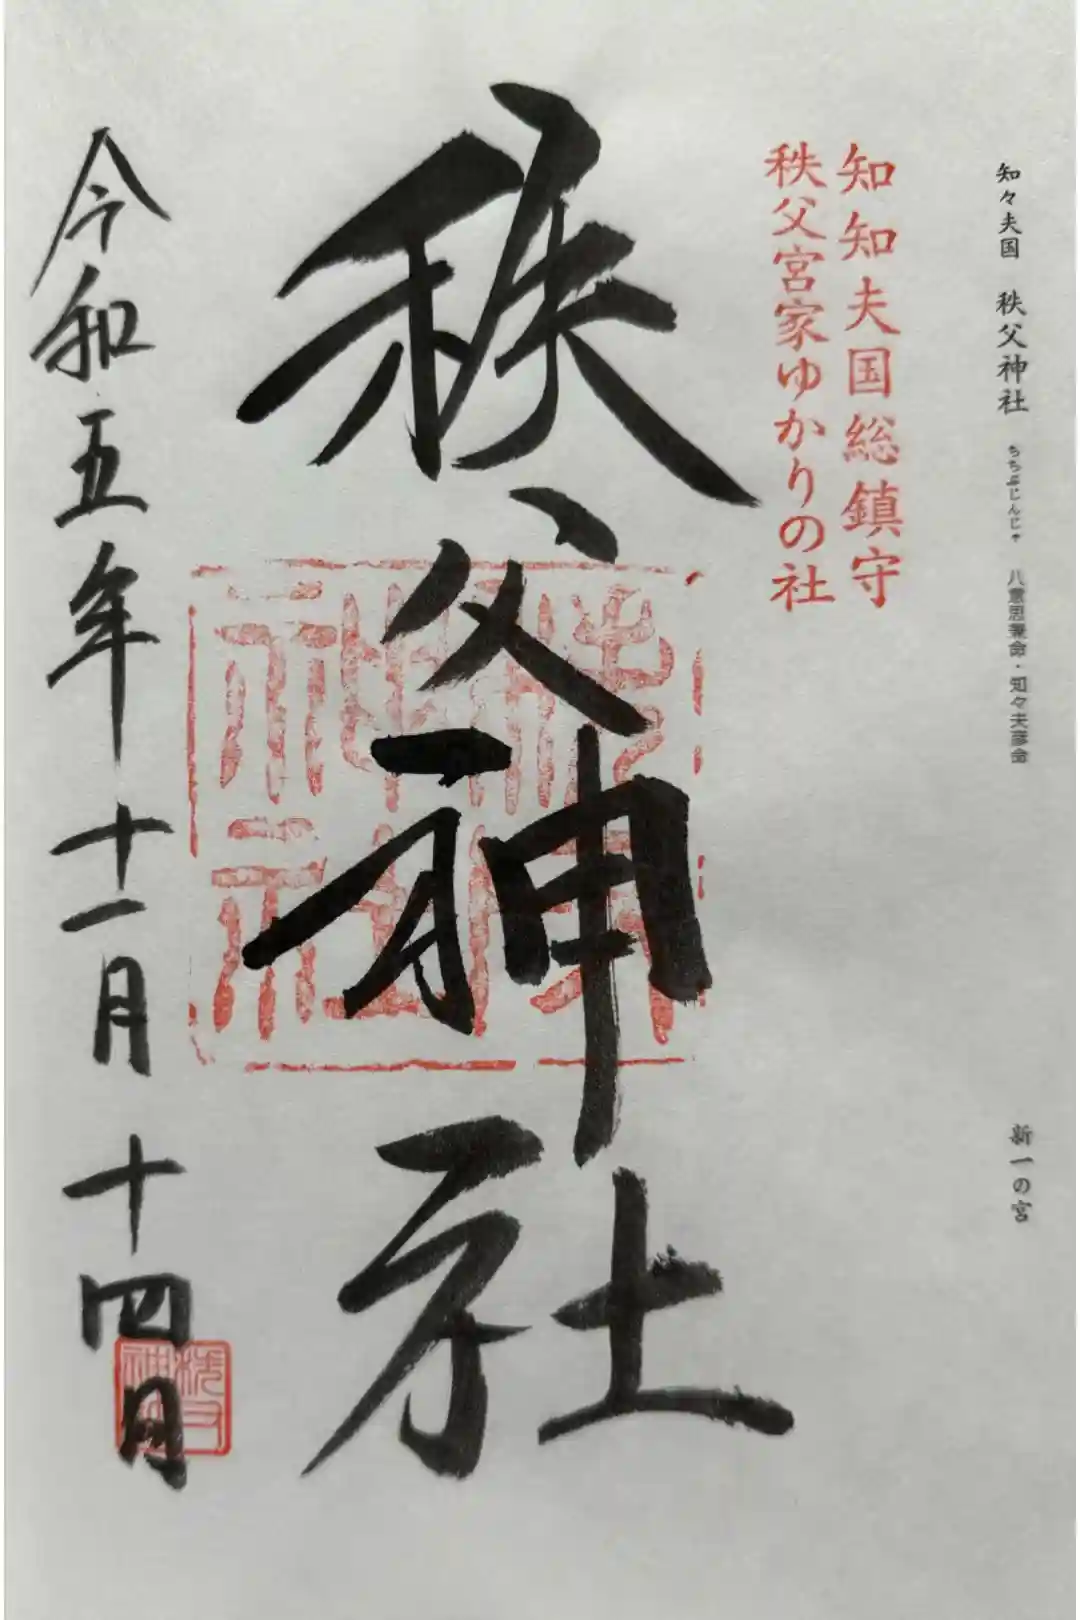 知々夫国 秩父神社 ちちぶじんじゃ 八意思兼命・知々夫彦命
新一の宮
知知夫国総鎮守
秩父宮家ゆかりの社
秩父神社
令和五年十一月十四日